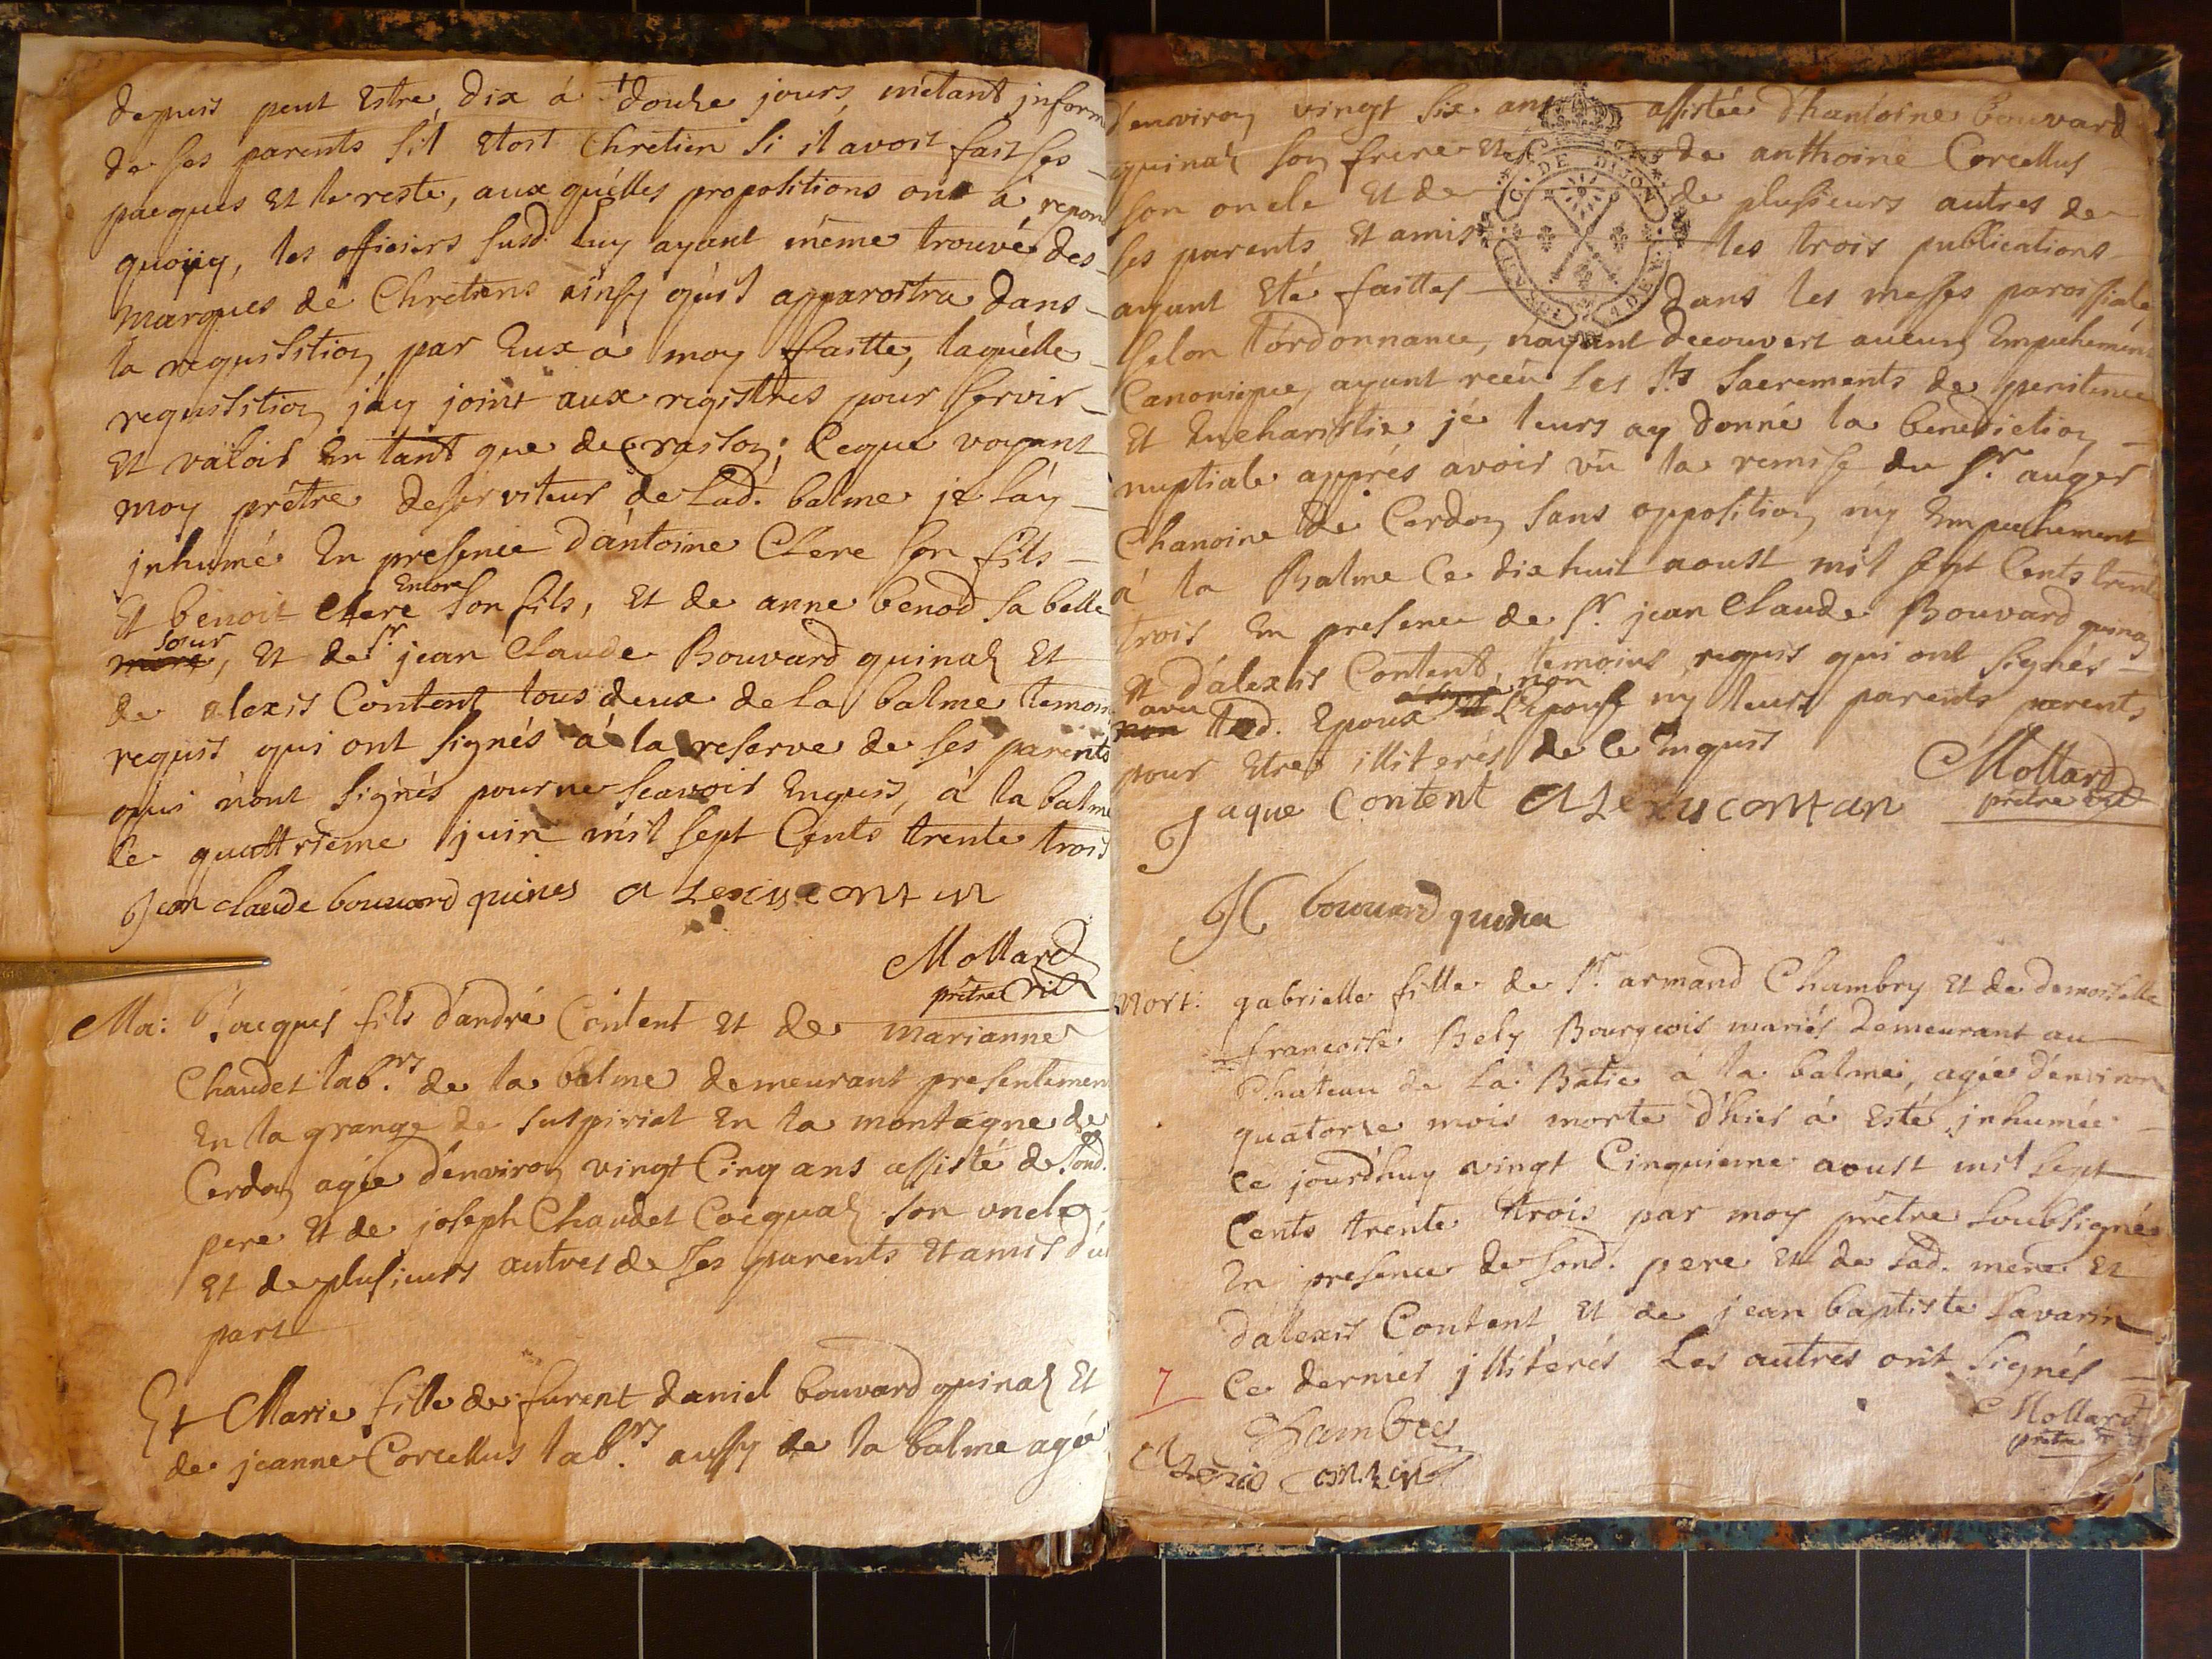 depuis peut Estre, dix à douze jours, m'étant inform
de ses parents s'il Etoit Chretien si il avoit fait ses
pacques Et le reste, aux quélles propositions ont à repon
quoüy, les officiers susd. luy ayant méme trouvé des
marques de Chretiens ainsy qu'il apparoitra dans
la requisition par Eux à moy faitte, laquélle
requisition j'ay joint aux registres pour servir
Et valoir En tant que de raison; Ce que voyant
moy prétre deserviteur de lad. balme je l'ay
inhumé En presence d'antoine Clere son fils
Et benoit Clere Encore son fils, Et de anne benod sa belle
soeur, Et de Sr jean Claude Bouvard quinaz Et
de alexis Content tous deux de la balme temoin
requis qui ont signés à la reserve de ses parents
qui n'ont signés pour ne scavoir Enquis, à la balme
le quattrième juin mil sept Cents trente trois
Jean claude bouvard quines alexis contan
Mollard
prétre
Ma: Jacques fils d'andré Content Et de marianne
Chaudet labrs de la balme demeurant presentemen
En la grange de suspiriat En la montagne de
Cerdon agée d'environ vingt Cinq ans assisté de sond.
pere Et de joseph Chaudet Cocquaz son oncle
Et de plusieurs autres de ses parents Et amis d'u
part
Et Marie fille de furent daniel bouvard quinaz Et
de jeanne Corcellus labrs aussy de la balme agée
d'environ vingt six ans assistée d'hantoine bouvard
quinaz son frere Et de anthoine Corcellus
G. DE DIJON
son oncle Et de de plusieurs autres de
ses parents Et amis les trois publications
ayant Eté faittes dans les messes paroissiale
selon l'ordonnance, n'ayant decouvert aucun Empechement
Canonique, ayant reçu les Sts Sacrements de penitence
Et Eucharistie je leurs ay donné la benediction
nuptiale apprés avoir vü la remise du Sr auger
Chanoine de Cerdon sans opposition ny Empechement
à la Balme Ce dix huit aoust mil sept Cents trente
trois En presence de Sr jean Claude Bouvard quinaz
Et d'alexis Content, temoins requis qui ont signés
avec led. Epoux non L'epouse ny leurs parents parents
pour Etre illiterés de Ce Enquis
Jaque Content Alexis contan Mollard
prétre
JC bouvard quina
Mort: gabrielle fille de Sr armand Chambry Et de demoiselle
françoise Bely Bourgeois mariés demeurant au
Chateau de La Batie à la balme, agée d'environ
quatorze mois morte d'hier à Esté inhumée
Ce jourd'huy vingt Cinquieme aoust mil sept
Cents trente trois par moy prétre soubsigné
En presence de sond. pere Et de sad. mere Et
d'alexis Content Et de jean baptiste Savarin
7 Ce dernier illiterés Les autres ont signés
Mollard
prétre
Chambry
Alexis contan